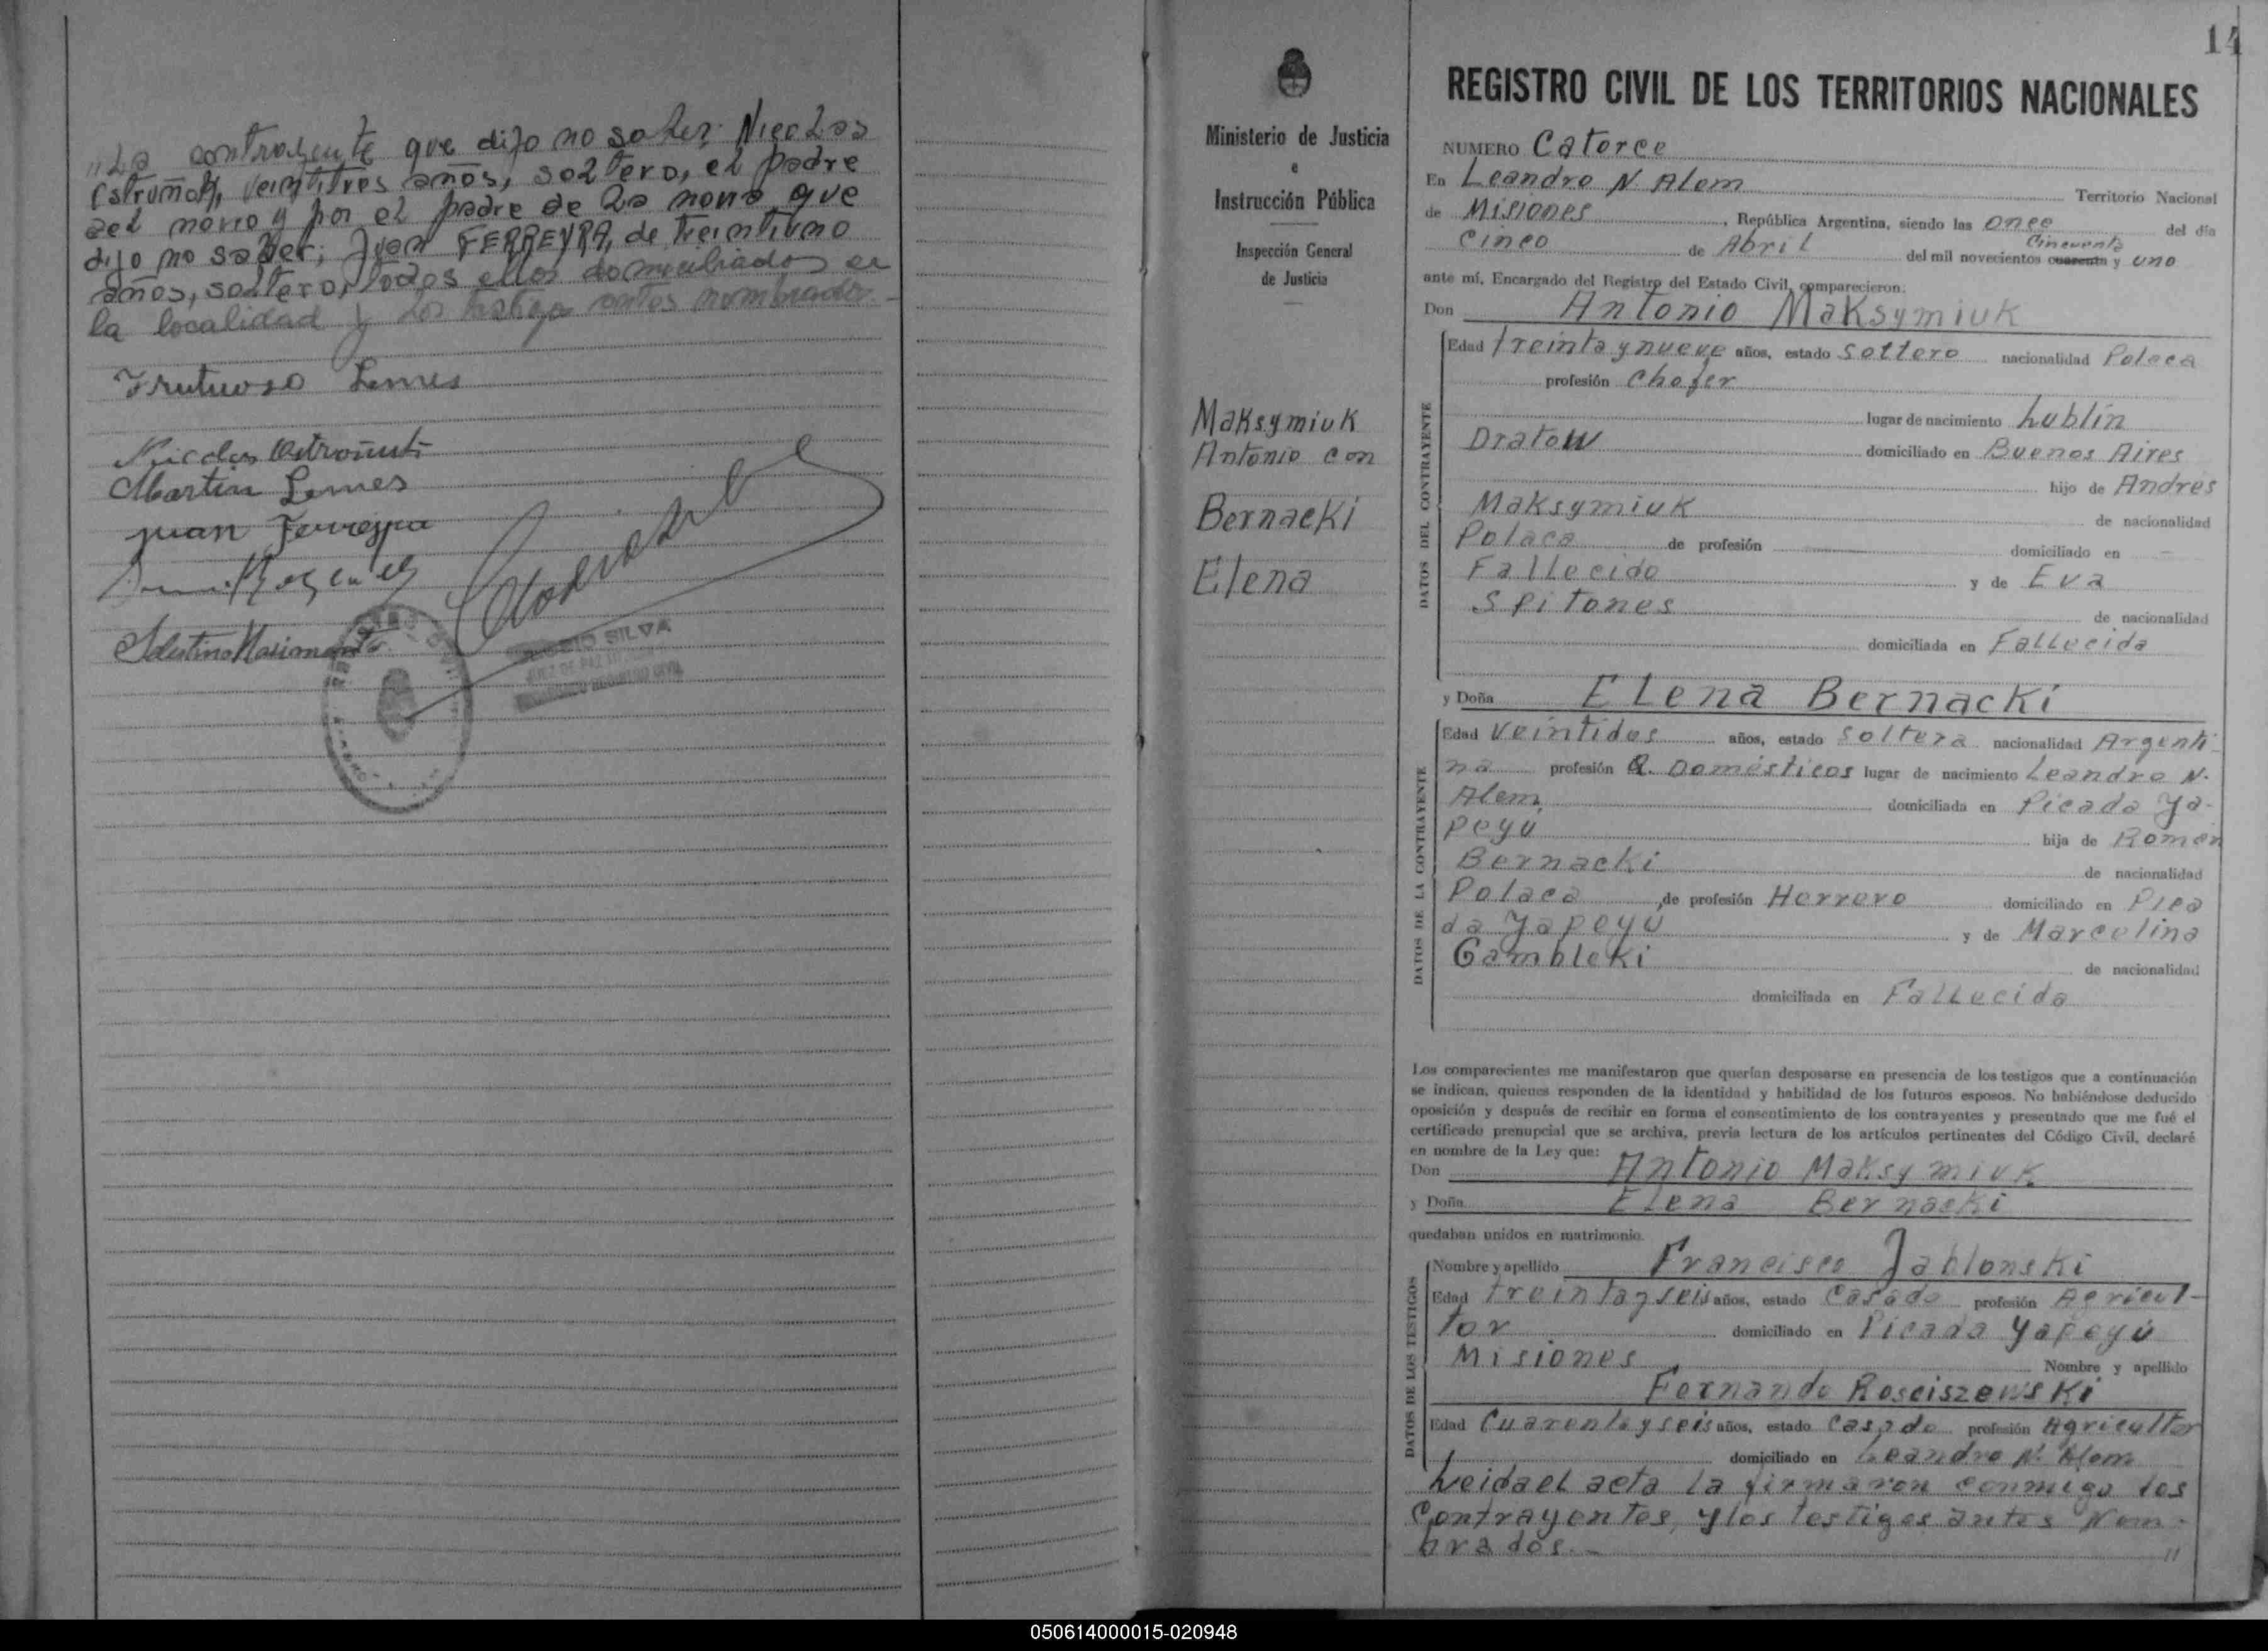 "La contrayente que dijo no saber: Nicolas
veintitres años, soltero, el padre
del novio y por el padre de la novia que
dijo no saber; Juan FERREYRA, de treintiuno
años, soltero, todos ellos domiciliados en
la localidad y los testigo antes nombrados-
Frutuoso Lemes
Nicolas
Martin Lemes
juan Ferreyra
SILVA
JUEZ DE PAZ
14
Ministerio de Justicia
e
Instrucción Pública
Inspección General
de Justicia
Maksymiuk
Antonio con
Bernacki
Elena
REGISTRO CIVIL DE LOS TERRITORIOS NACIONALES
NUMERO Catorce
En Leandro N. Alem Territorio Nacional
de Misiones, República Argentina, siendo las once del día
cinco de Abril del mil novecientos cuarenta cincuenta y uno
ante mí, Encargado del Registro del Estado Civil, comparecieron:
Don Antonio Maksymiuk
DATOS DEL CONTRAYENTE
Edad treinta y nueve años, estado soltero nacionalidad Polaca
profesión Chofer
lugar de nacimiento Lublín
Dratow domiciliado en Buenos Aires
hijo de Andrés
Maksymiuk de nacionalidad
Polaca de profesión domiciliado en -
Fallecido y de Eva
Spitones de nacionalidad
domiciliada en Fallecida
y Doña Elena Bernacki
DATOS DE LA CONTRAYENTE
Edad veintidos años, estado soltera nacionalidad Argenti-
na profesión Q. Domésticos lugar de nacimiento Leandro N.
Alem domiciliada en Picada Ya-
peyú hija de Román
Bernacki de nacionalidad
Polaca, de profesión Herrero domiciliado en Pica
da Yapeyú y de Marcelina
Gambleki de nacionalidad
domiciliada en Fallecida
Los comparecientes me manifestaron que querían desposarse en presencia de los testigos que a continuación
se indican, quienes responden de la identidad y habilidad de los futuros esposos. No habiéndose deducido
oposición y después de recibir en forma el consentimiento de los contrayentes y presentado que me fué el
certificado prenupcial que se archiva, previa lectura de los artículos pertinentes del Código Civil, declaré
en nombre de la Ley que:
Don Antonio Maksymiuk
y Doña Elena Bernacki
quedaban unidos en matrimonio.
DATOS DE LOS TESTIGOS
Nombre y apellido Francisco Jablonski
Edad treinta y seis años, estado Casado profesión Agricul-
tor domiciliado en Picada Yapeyú
Misiones Nombre y apellido
Fernando Rosciszewski
Edad Cuarenta y seis años, estado casado profesión Agricultor
domiciliado en Leandro N. Alem
Leida el acta la firmaron conmigo los
Contrayentes, y los testigos antes Nom-
brados.- "
050614000015-020948